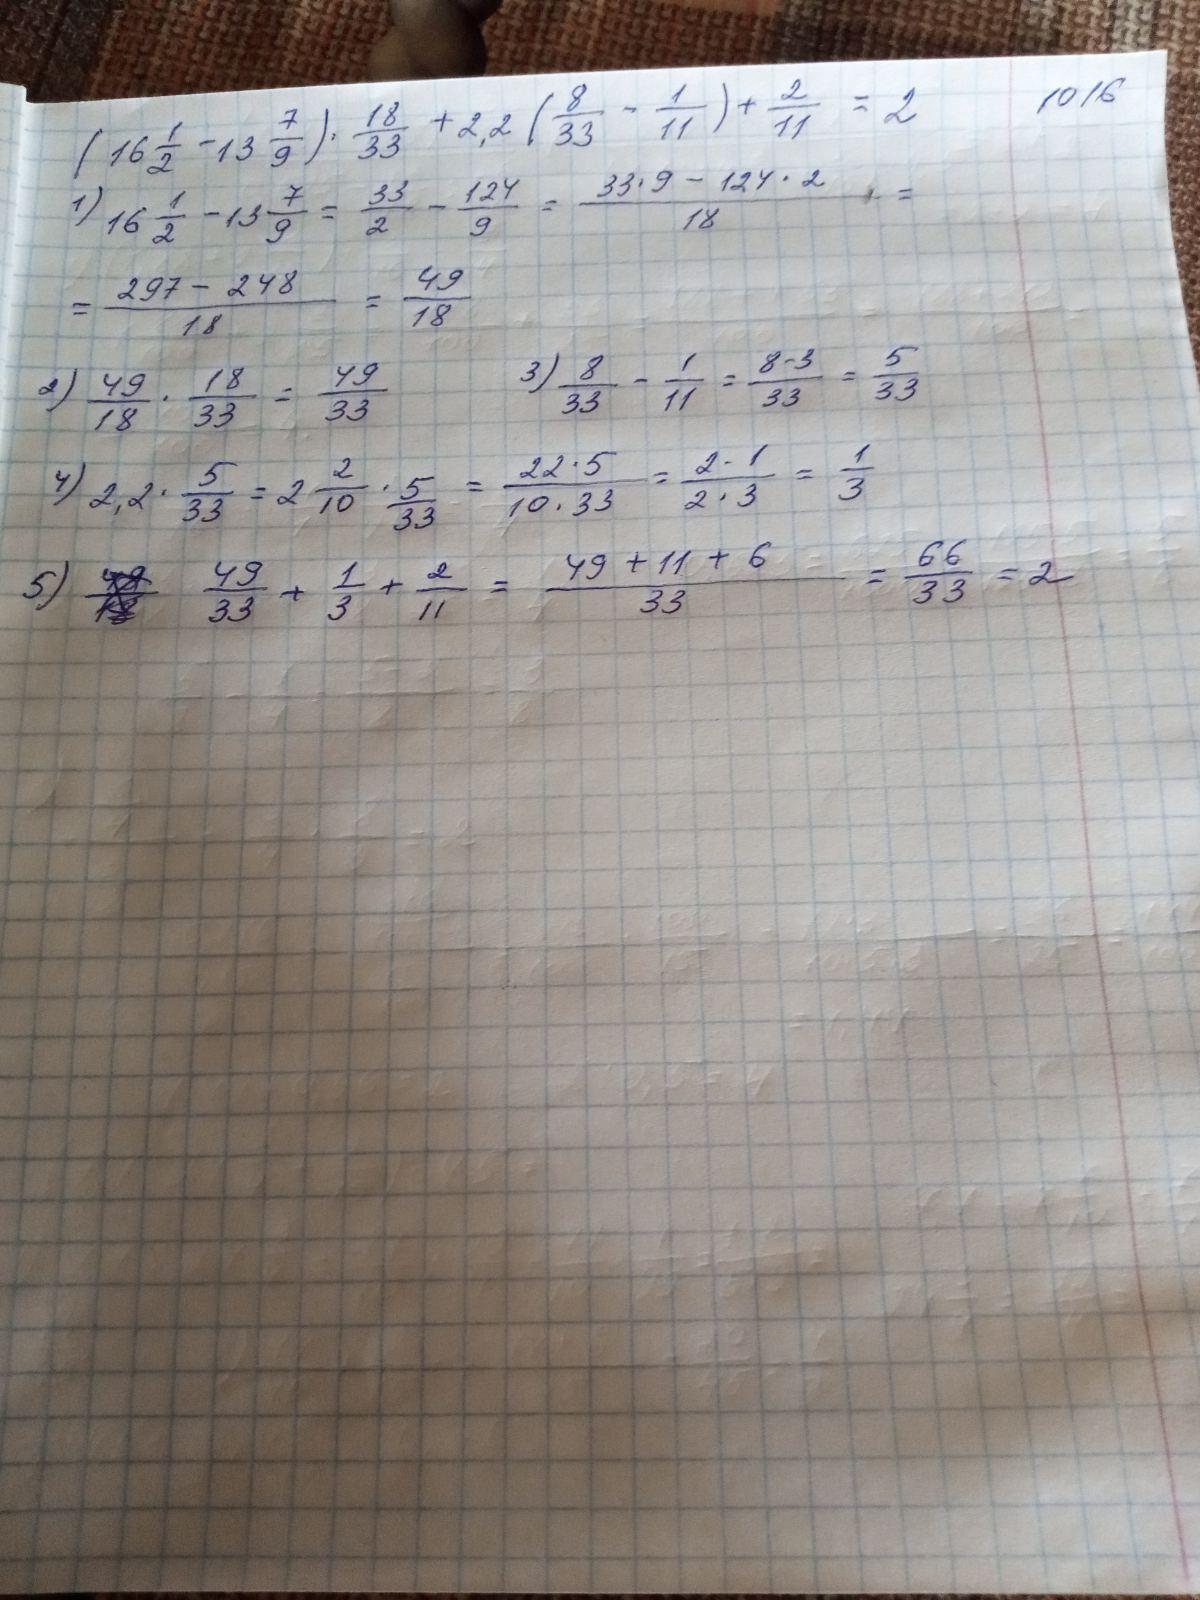 (16 1/2 - 13 7/9) · 18/33 + 2,2 (8/33 - 1/11) + 2/11 = 2 1016
1) 16 1/2 - 13 7/9 = 33/2 - 124/9 = (33·9 - 124·2)/18 =
= (297 - 248)/18 = 49/18
2) 49/18 · 18/33 = 49/33 3) 8/33 - 1/11 = (8-3)/33 = 5/33
4) 2,2 · 5/33 = 2 2/10 · 5/33 = (22·5)/(10·33) = (2·1)/(2·3) = 1/3
5) 49/33 + 1/3 + 2/11 = (49 + 11 + 6)/33 = 66/33 = 2